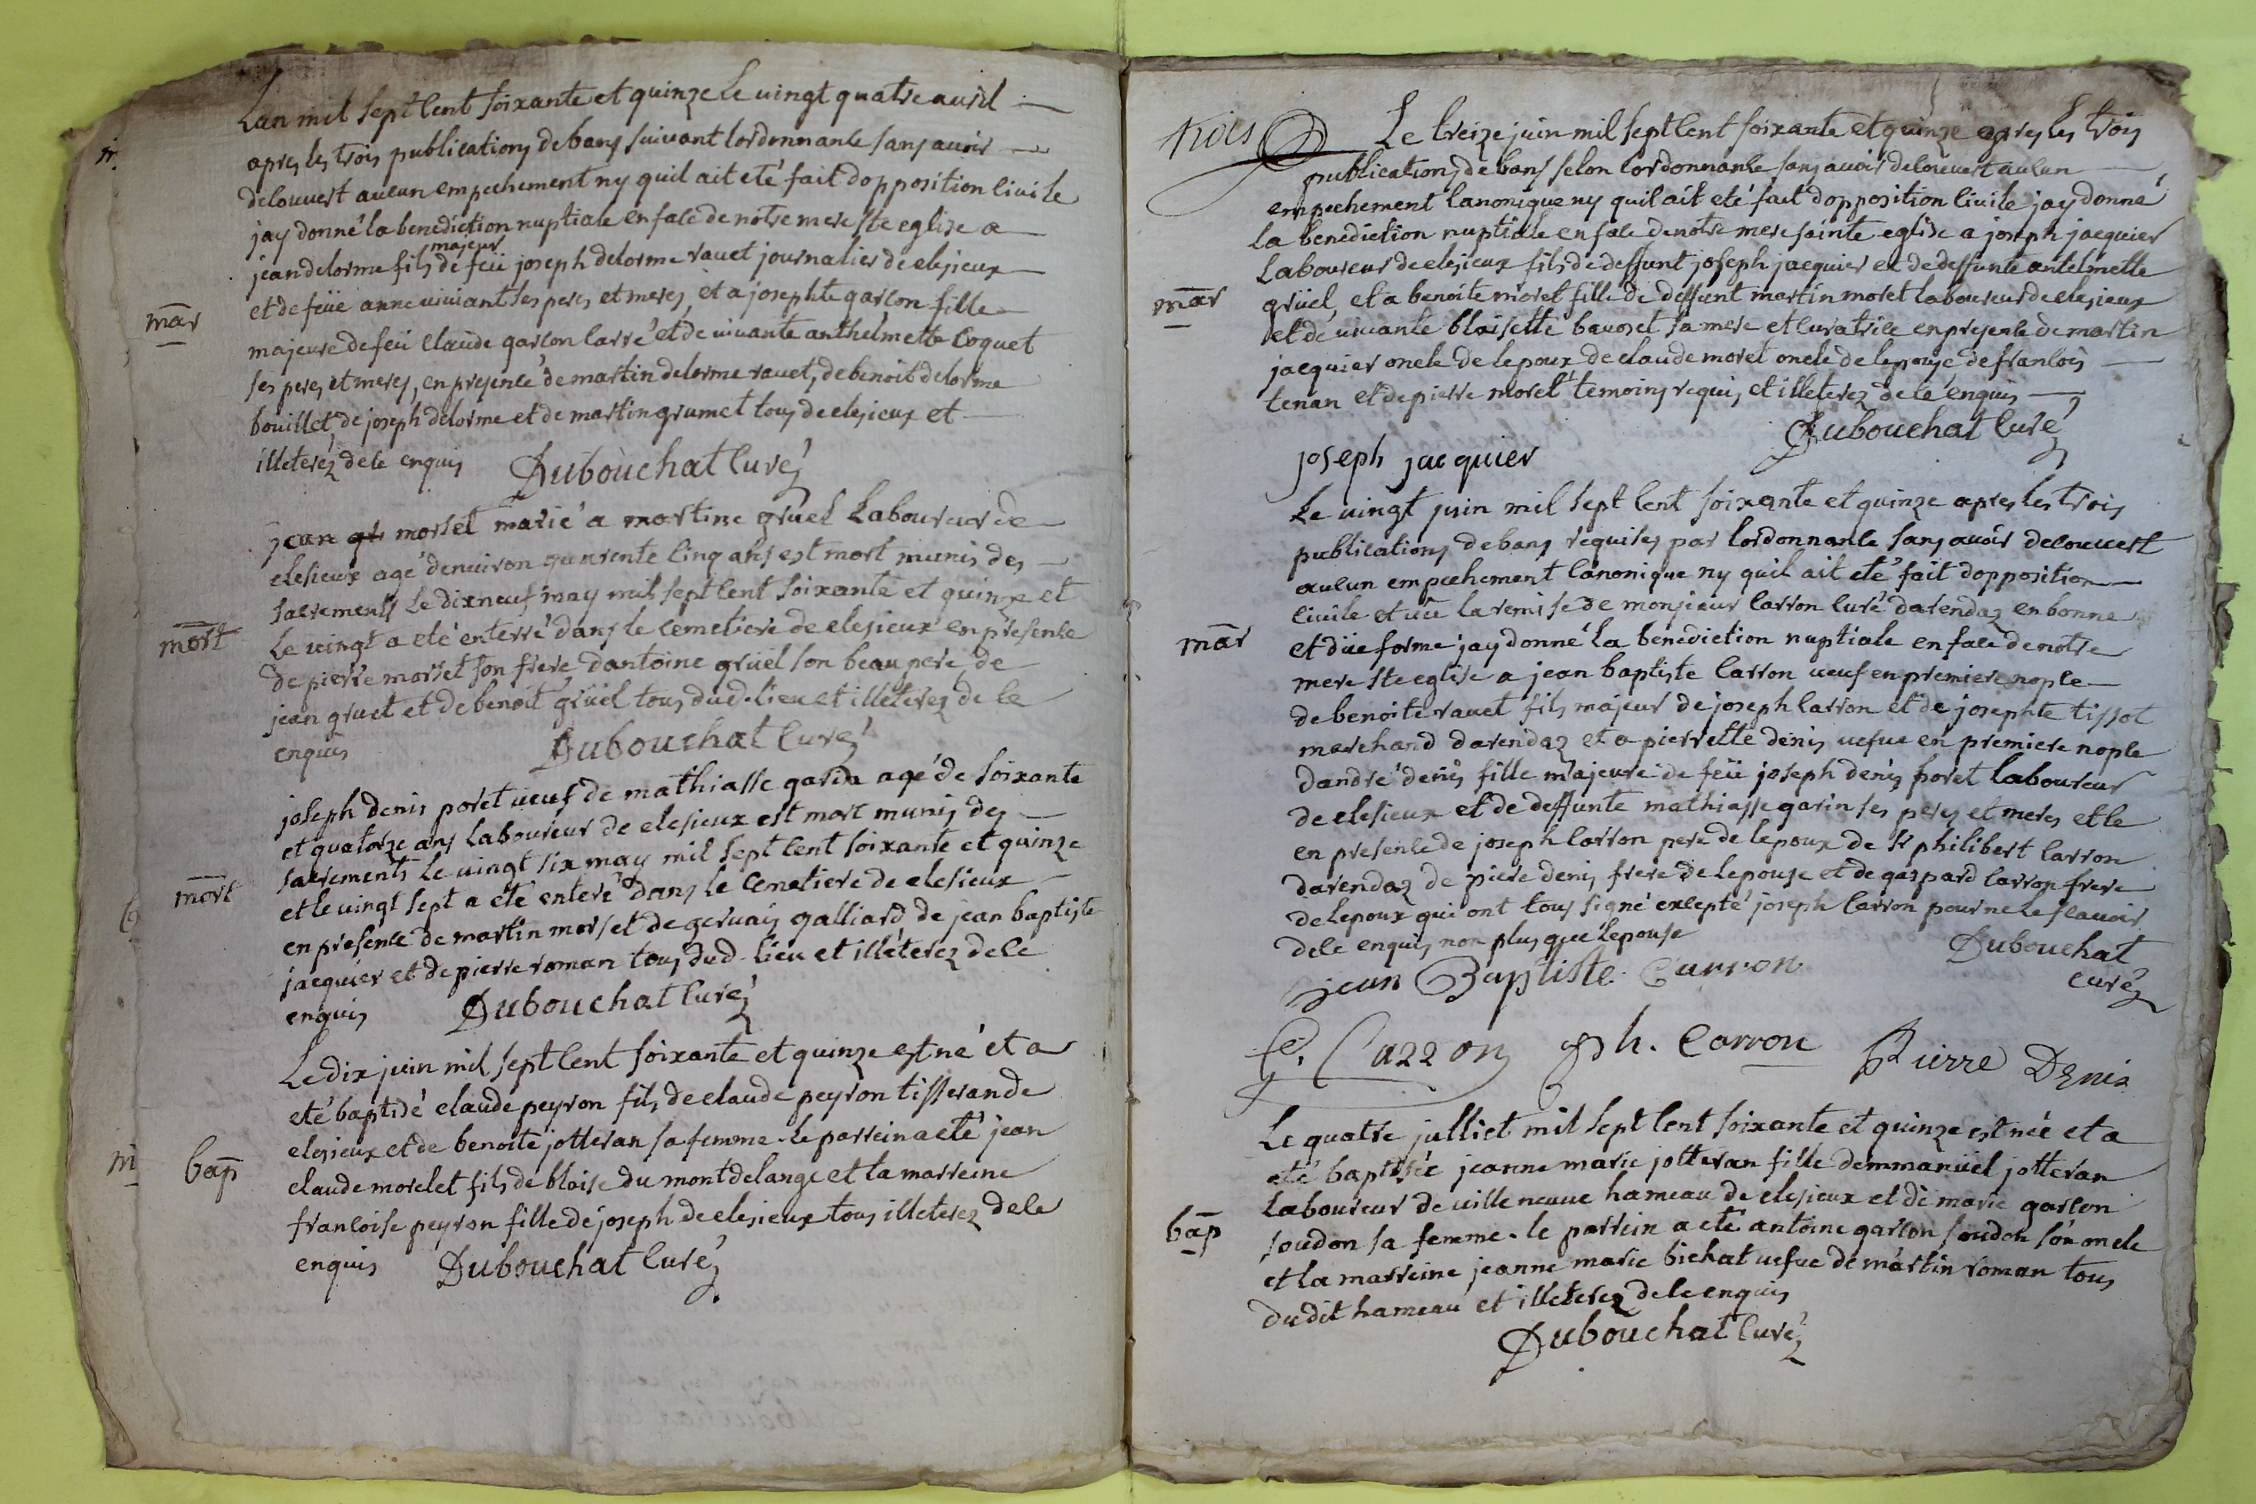 Lan mil sept cent soixante et quinze le vingt quatre avril
apres les trois publications de bans suivant lordonnance sans avoir
decouvert aucun empechement ny quil ait eté fait dopposition civile
jay donné la benediction nuptiale en face de nôtre mere ste eglise a
majeur
jean delorme fils de feü joseph delorme ravet journalier de clesieux
et de feüe anne viviant ses peres et meres, et a josephte garcon fille
mar
majeure de feü claude garcon carré et de vivante anthelmette coquet
ses peres et meres, en presence de martin delorme ravet, de benoit delorme
bouillet, de joseph delorme et de martin grumet tous de clesieux et
illeterez de ce enquis Dubouchat curé
jean morset marié a martine gruel laboureur de
clesieux agé denviron quarente cinq ans est mort munis des
sacrements le dixneuf may mil sept cent soixante et quinze et
mort
le vingt a eté enterré dans le cemetiere de clesieux en presence
de pierre morset son frere, dantoine grüel son beau pere, de
jean gruel et de benoit grüel tous dud. lieu et illeterez de ce
enquis Dubouchat curé
joseph denis poret veuf de mathiasse garin agé de soixante
et quatorze ans laboureur de clesieux est mort munis des
sacrements le vingt six may mil sept cent soixante et quinze
mort
et le vingt sept a eté enteré dans le cemetiere de clesieux
en presence de martin morset de gervais galliard de jean baptiste
jacquier et de pierre roman tous dud. lieu et illéterez de ce
enquis Dubouchat curé
Le dix juin mil sept cent soixante et quinze est né et a
eté baptisé claude peyron fils de claude peyron tisserand de
clesieux et de benoite jotteran sa femme. le parrein a eté jean
m bap
claude morelet fils de blaise du mont delange et la marreine
francoise peyron fille de joseph de clesieux tous illeterez de ce
enquis Dubouchat curé
trois
Le treize juin mil sept cent soixante et quinze apres les trois
publications de bans selon lordonnance sans avoir decouvert aucun
empechement canonique ny quil ait eté fait dopposition civile jay donné
la benediction nuptiale en face de notre mere sainte eglise a joseph jacquier
laboureur de clesieux fils de deffunt joseph jacquier et de deffunte antelmette
mar
grüel, et a benoite moret fille de deffunt martin moret laboureur de clesieux
et de vivante blaisette bavoset sa mere et curatrice en presence de martin
jacquier oncle de lepoux de claude moret oncle de lepouse de francois
tenan et de pierre moret temoins requis et illeterez de ce enquis
Dubouchat curé
joseph jacquier
Le vingt juin mil sept cent soixante et quinze apres les trois
publications de bans requises par lordonnance sans avoir decouvert
aucun empechement canonique ny quil ait eté fait dopposition
civile et vüe la remise de monsieur carron curé darendaz en bonne
mar
et düe forme jay donné la benediction nuptiale en face de notre
mere ste eglise a jean baptiste carron veuf en premiere nopce
de benoite ravet fils majeur de joseph carron et de josephte tissot
marchand darendaz et a pierrette denis vefve en premiere nopce
dandré denis fille majeure de feü joseph denis poret laboureur
de clesieux et de deffunte mathiasse garin ses peres et meres et ce
en presence de joseph carron pere de lepoux de sr philibert carron
darendaz de piere denis frere de lepouse et de gaspard carron frere
de lepoux qui ont tous signé excepté joseph carron pour ne le scavoir
de ce enquis non plus que lepouse
Dubouchat
curé
jean Baptiste Carron
G. Carron ph. Carron Pierre Denis
Le quatre julliet mil sept cent soixante et quinze est née et a
eté baptisée jeanne marie jotteran fille demmanüel jotteran
laboureur de ville neuve hameau de clesieux et de marie garcon
bap
soudon sa femme. le parrein a eté antoine garcon soudon son oncle
et la marreine jeanne marie bichat vefve de martin roman tous
dudit hameau et illeterez de ce enquis
Dubouchat curé